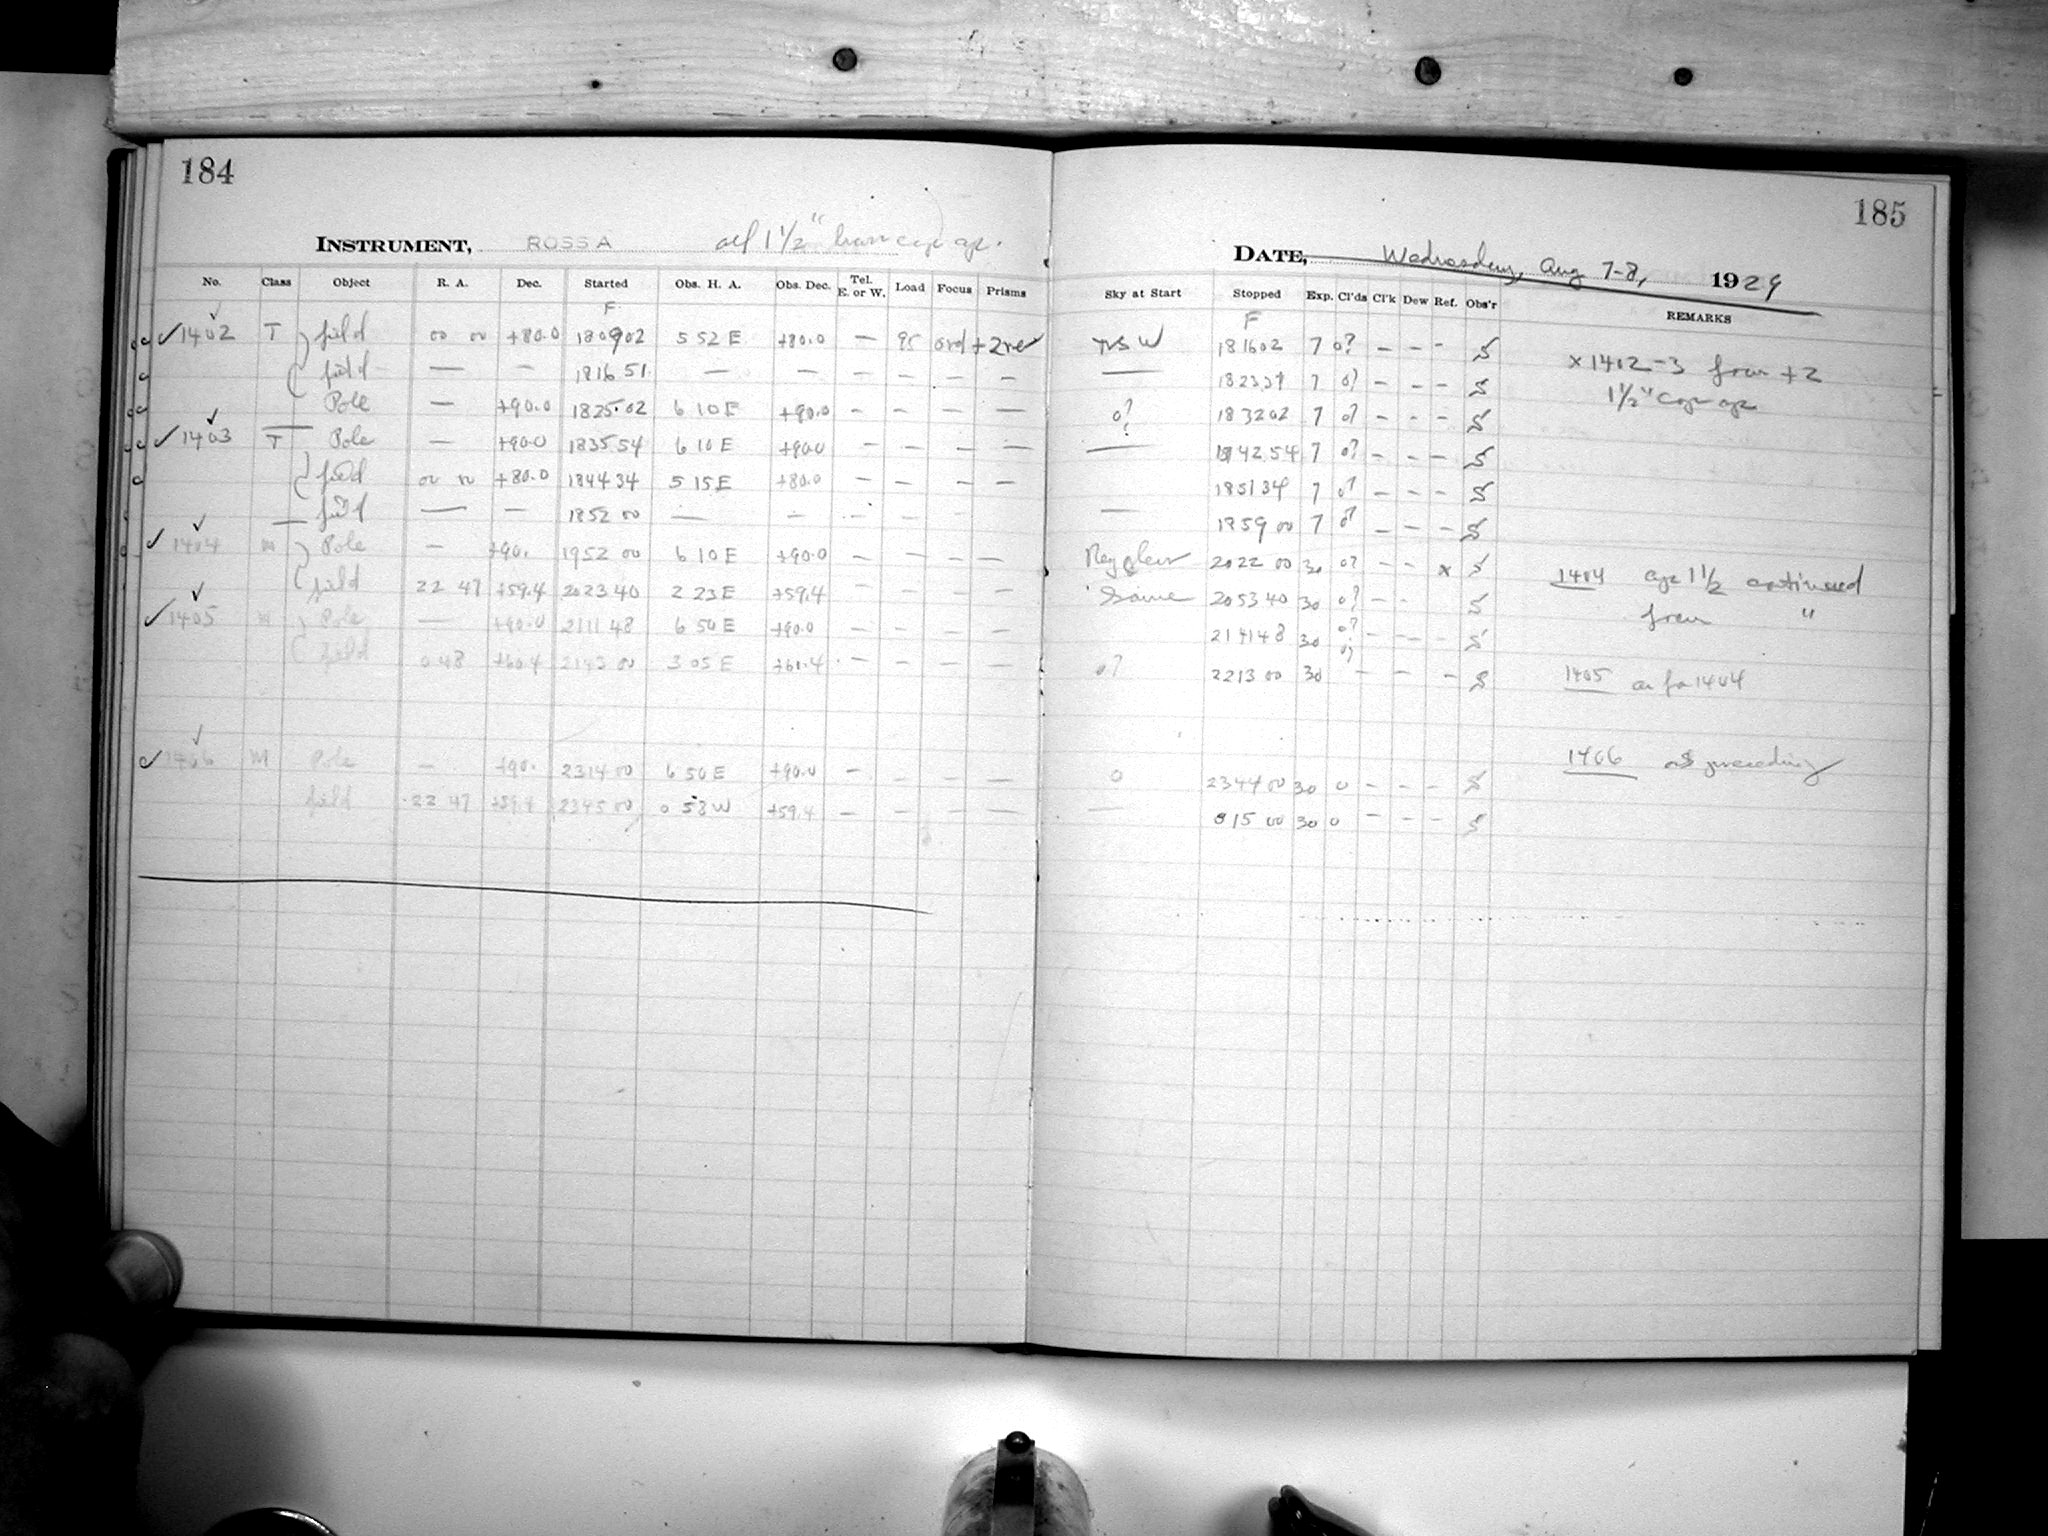 184
INSTRUMENT, ROSS A all 1 1/2"
No. Class Object R. A. Dec. Started Obs. H. A. Obs. Dec. Tel. E. or W. Load Focus Prisms
F
1402 T field 00 00 +80.0 180902 5 52 E +80.0 — 95 ord +2
field — — 181651 — — — — — —
Pole — +90.0 182502 6 10 E +90.0 — — — —
1403 T Pole — +90.0 183554 6 10 E +90.0 — — — —
field 00 00 +80.0 184434 5 15 E +80.0 — — — —
field — — 1852 00 — — — —
1404 M Pole — +90. 1952 00 6 10 E +90.0 — — — —
field 22 47 +59.4 202340 2 23 E +59.4 — — — —
1405 M Pole — +90.0 211148 6 50 E +90.0 — — — —
field 0 48 +60.4 2143 00 3 05 E +61.4 — — — —
1406 M Pole — +90. 2314 00 6 50 E +90.0 — — — —
field 22 47 +59.4 2345 00 0 58 W +59.4 — — — —
185
DATE, Wednesday, Aug 7-8, 1929
Sky at Start Stopped Exp. Cl'ds Cl'k Dew Ref. Obs'r REMARKS
F
181602 7 0? — — — S x 1402-3 from +2
— 182351 7 0? — — — S 1 1/2" cap
0? 183202 7 0? — — — S
— 184254 7 0? — — — S
185134 7 0? — — — S
— 1859 00 7 0? — — — S
2022 00 30 0? — — x S 1404 1 1/2 continued
Same 205340 30 0? — — S from "
214148 30 0? — — — S
0? 2213 00 30 0? — — — S 1405 as for 1404
0 2344 00 30 0 — — — S 1406 as preceding
— 015 00 30 0 — — — S